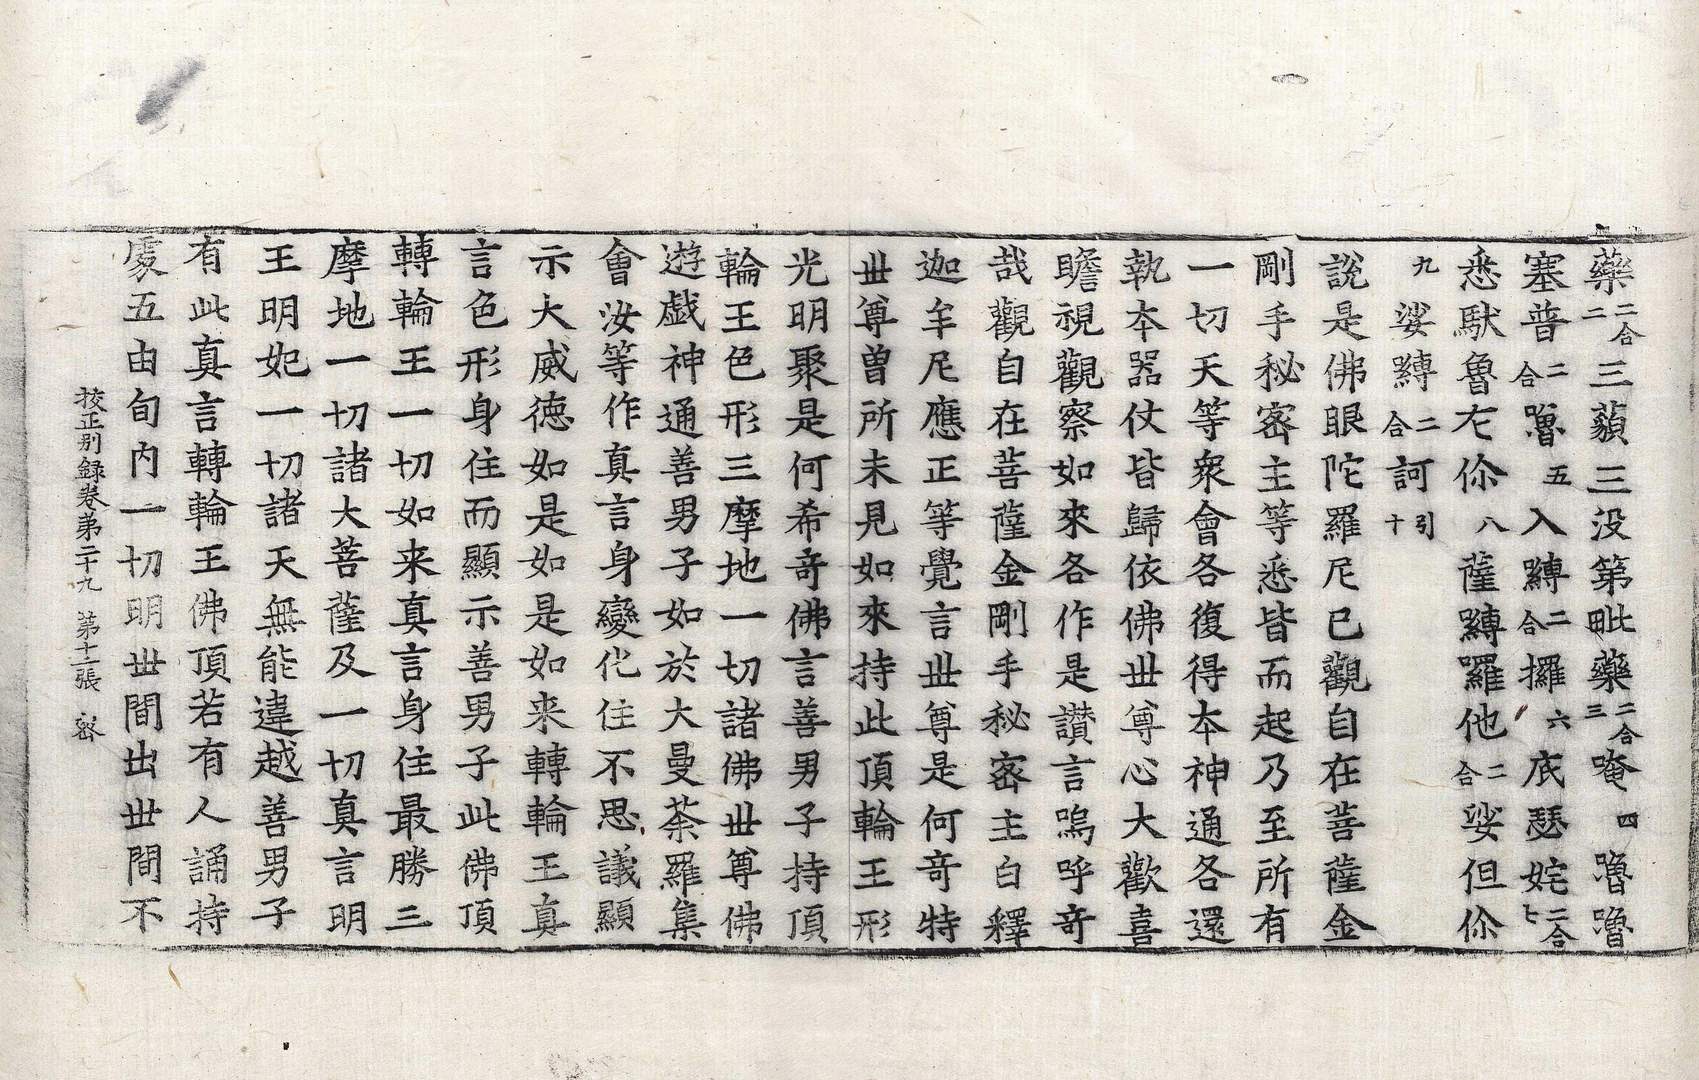 藥二合二三藐三没第毗藥二合三唵四嚕嚕
塞普二合嚕五入嚩二合攞六底瑟姹二合七
悉馱魯左你八薩嚩囉他二合娑但你
九娑嚩二合訶引十
說是佛眼陀羅尼已觀自在菩薩金
剛手秘密主等悉皆而起乃至所有
一切天等衆會各復得本神通各還
執本器仗皆歸依佛世尊心大歡喜
瞻視觀察如來各作是讚言嗚呼奇
哉觀自在菩薩金剛手秘密主白釋
迦牟尼應正等覺言世尊是何奇特
世尊曾所未見如來持此頂輪王形
光明聚是何希奇佛言善男子持頂
輪王色形三摩地一切諸佛世尊佛
遊戲神通善男子如於大曼荼羅集
會汝等作真言身變化住不思議顯
示大威德如是如是如来轉輪王真
言色形身住而顯示善男子此佛頂
轉輪王一切如来真言身住最勝三
摩地一切諸大菩薩及一切真言明
王明妃一切諸天無能違越善男子
有此真言轉輪王佛頂若有人誦持
處五由旬内一切明世間出世間不
挍正别録卷第二十九　第十二張　密